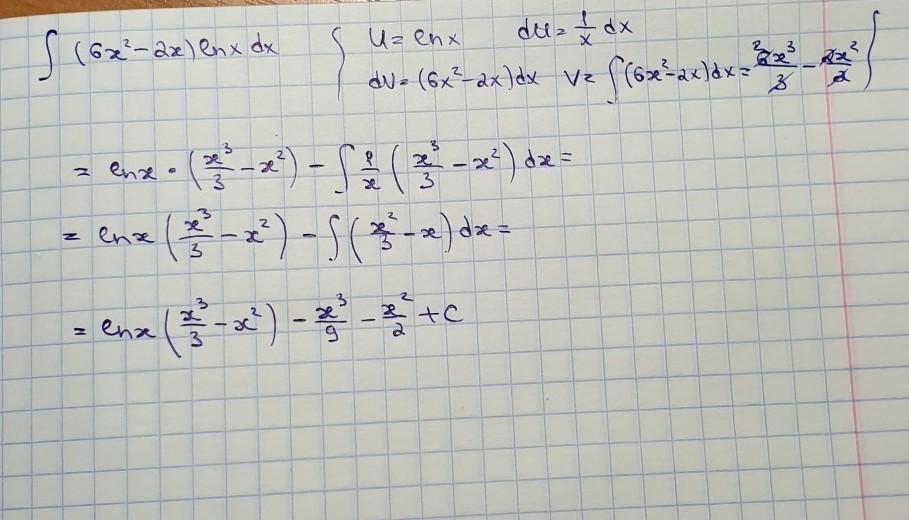 ∫ (6x² - 2x) ln x dx { u = ln x du = 1/x dx
dv = (6x² - 2x) dx v = ∫ (6x² - 2x) dx = ²6x³/3 - 2x²/2 }
= ln x · (x³/3 - x²) - ∫ 1/x (x³/3 - x²) dx =
= ln x (x³/3 - x²) - ∫ (x²/3 - x) dx =
= ln x (x³/3 - x²) - x³/9 - x²/2 + C